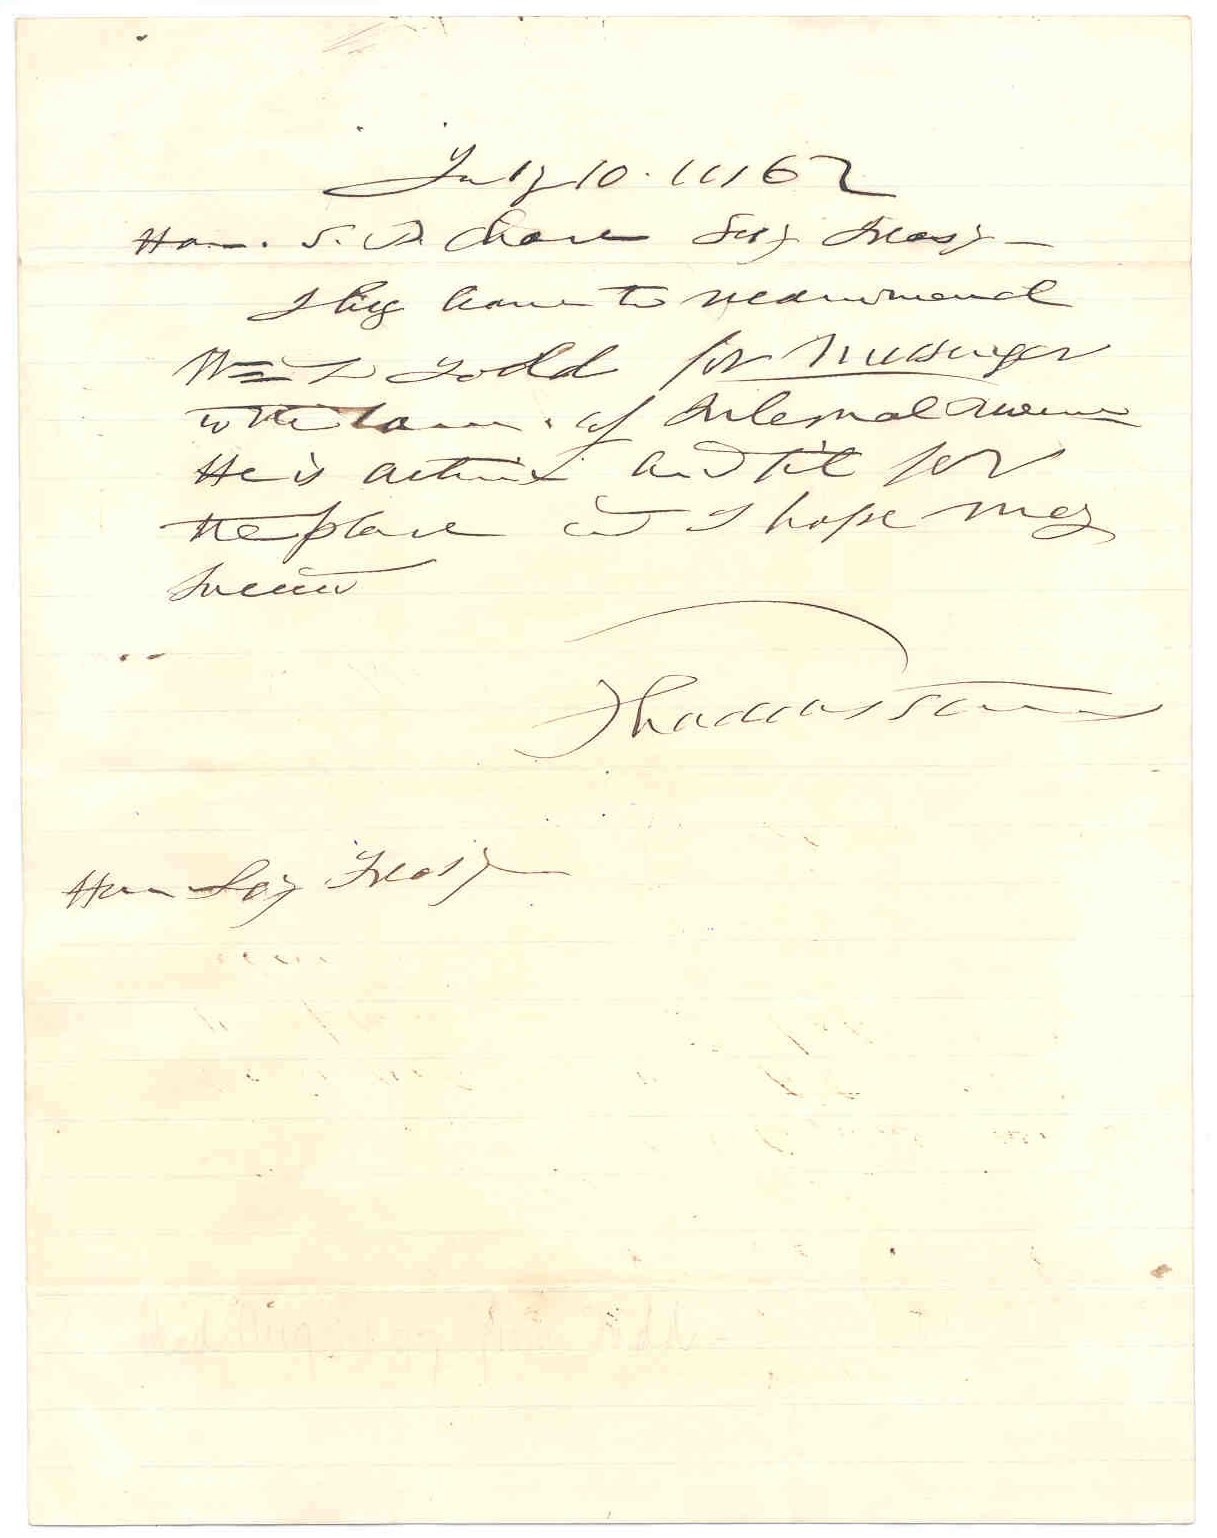 July 10. 1862
Hon. S. P. Chase Secy Treasy
I beg leave to recommend
Wm L Todd for Messenger
to the Com. of Internal Revenue
He is active and fit for
the place and I hope may
succeed
Thaddeus Stevens
Hon Secy Treasy